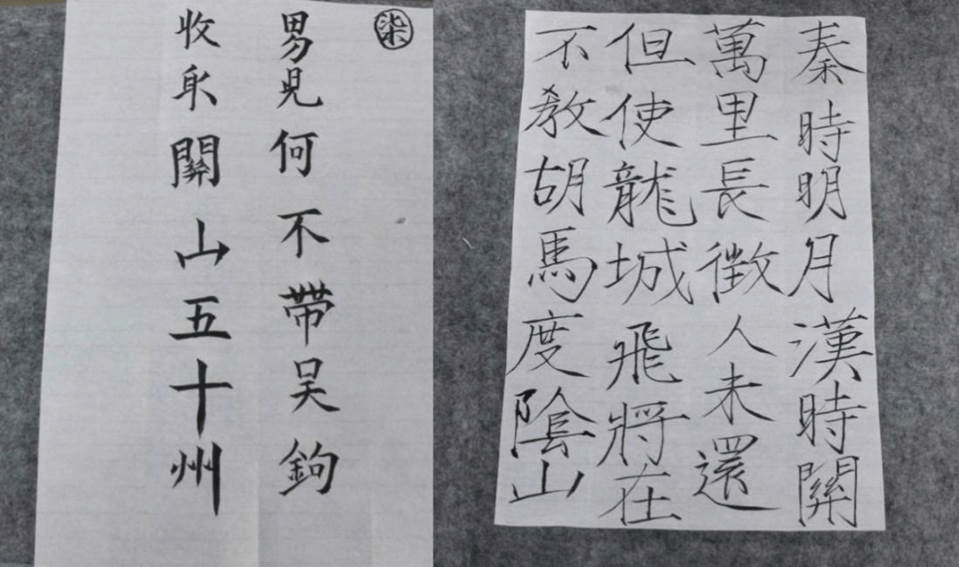 柒
男兒何不帶吴鉤
收取關山五十州
秦時明月漢時關
萬里長徵人未還
但使龍城飛將在
不教胡馬度陰山